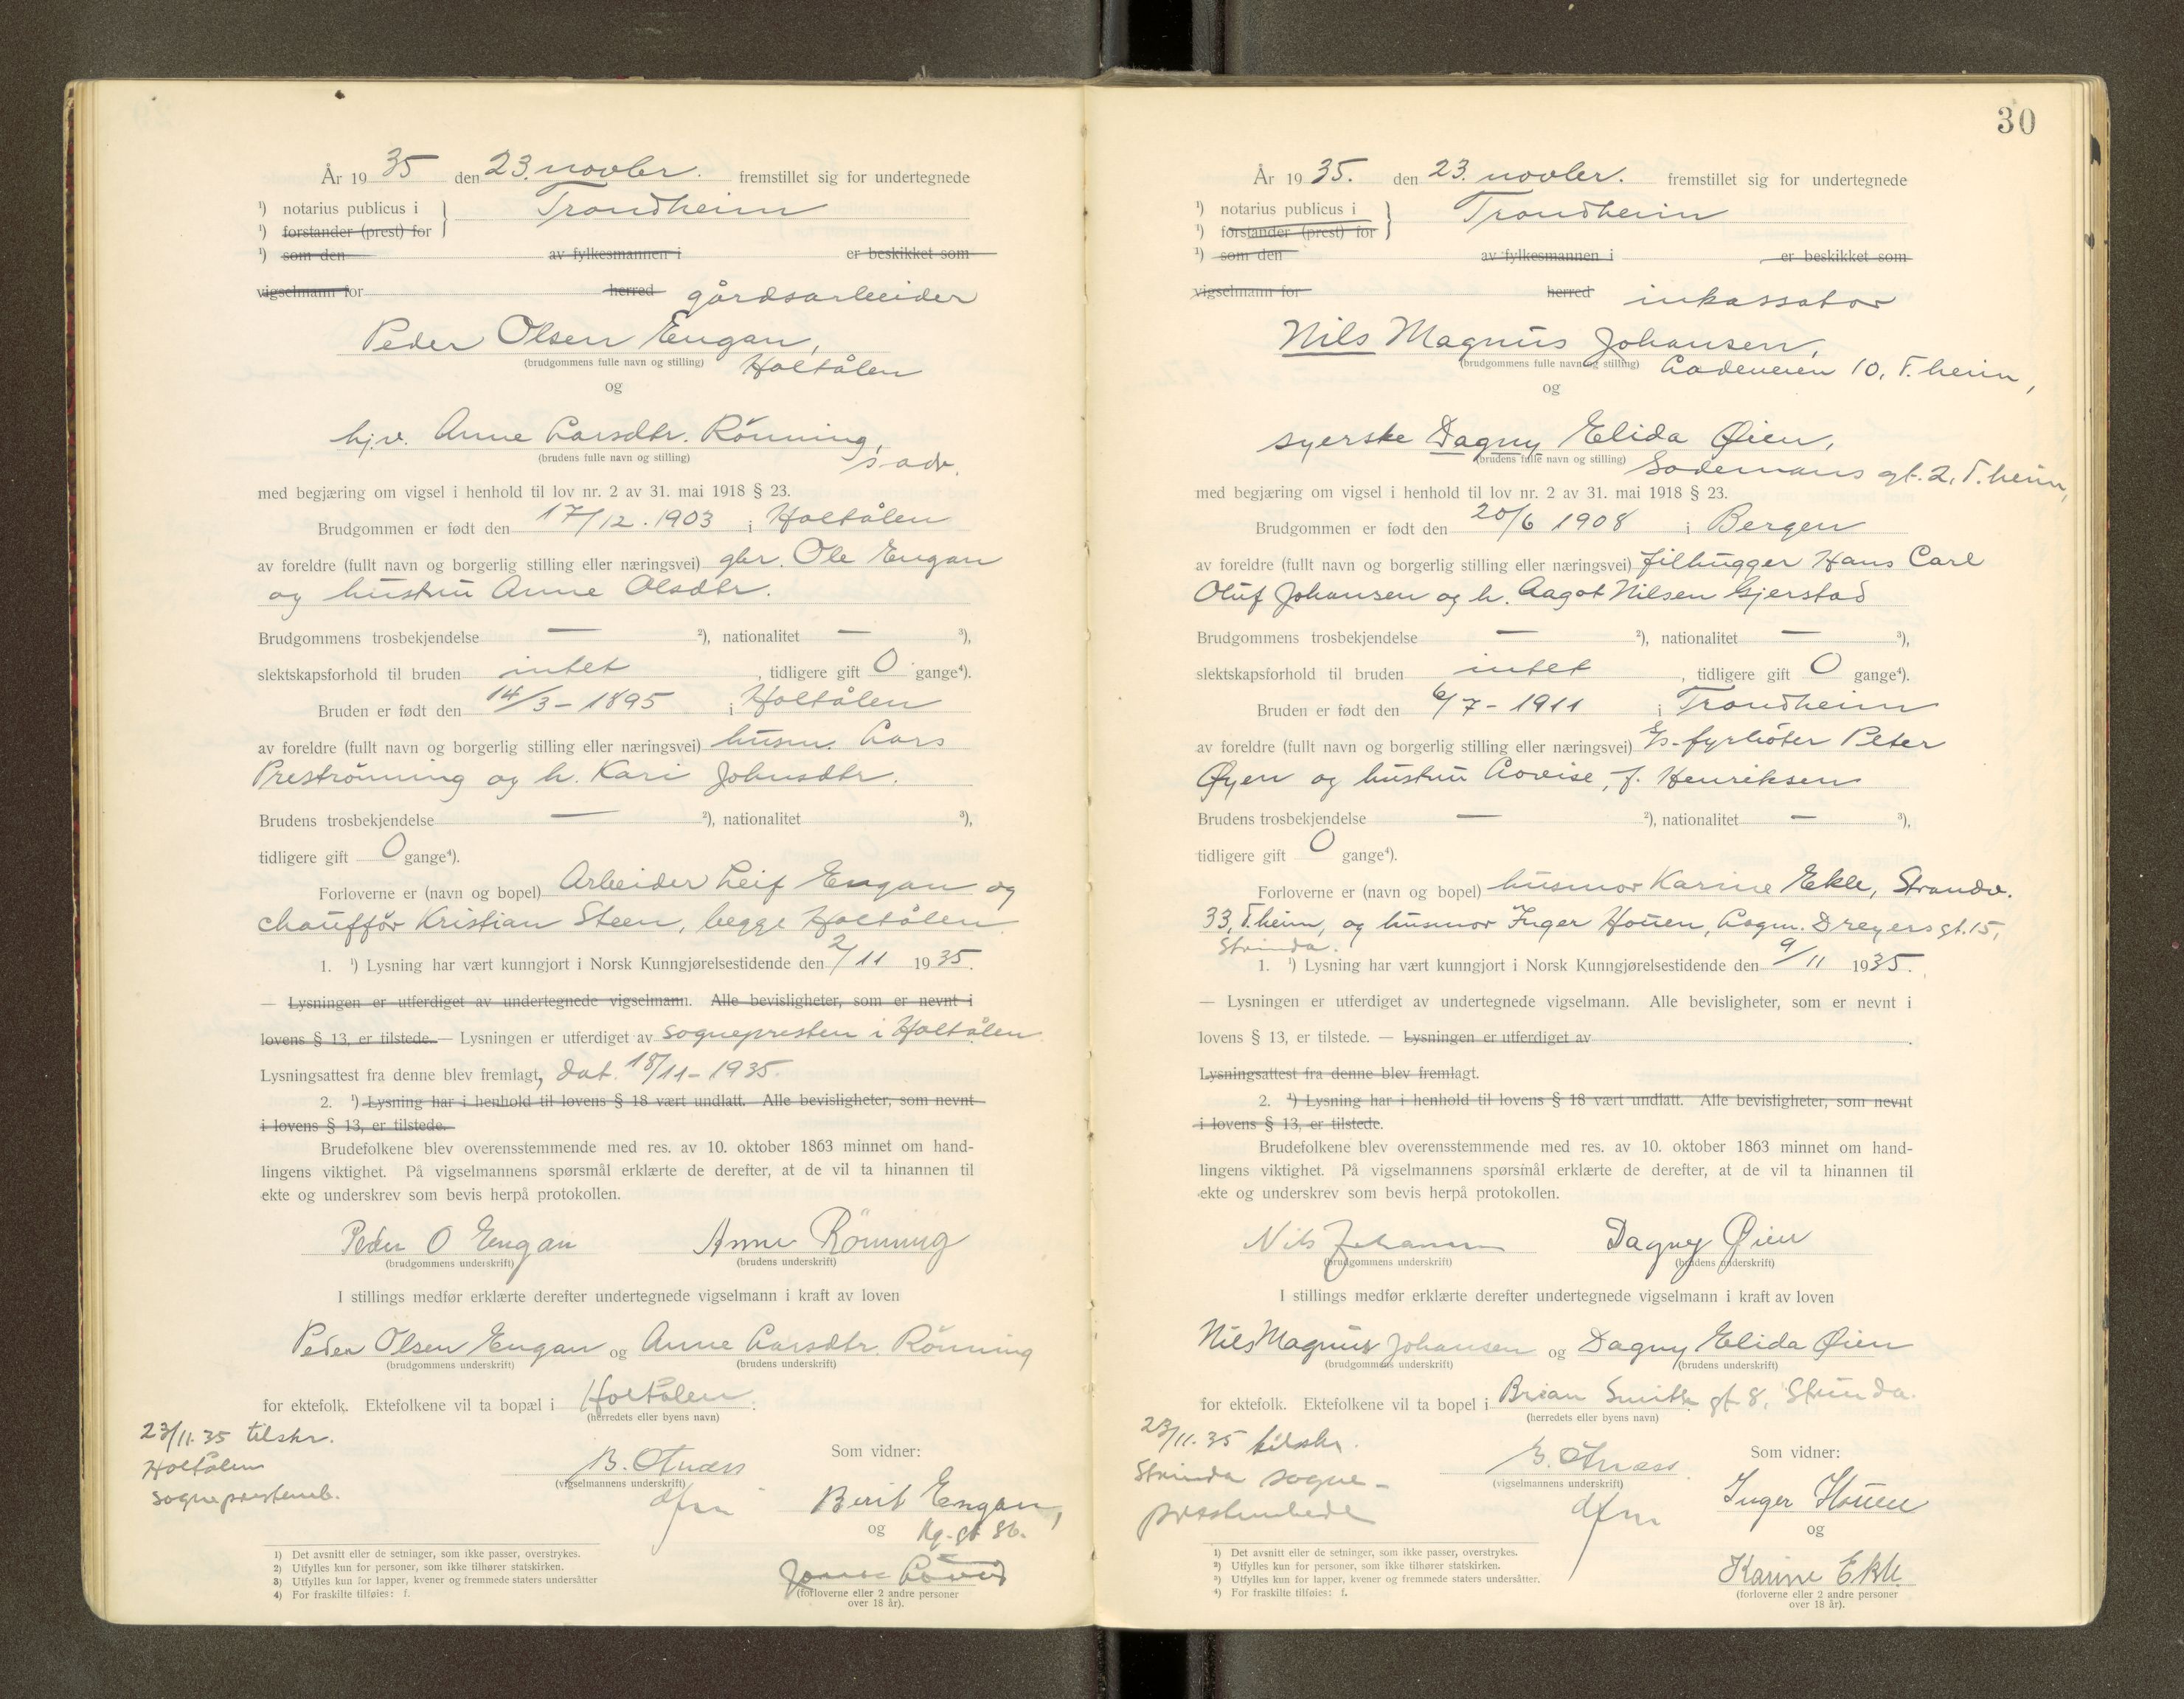 År 19 35 den 23. novbr. fremstillet sig for undertegnede
¹) notarius publicus i } Trondheim
¹) forstander (prest) for
¹) som den av fylkesmannen i er beskikket som
vigselmann for herred gårdsarbeider
Peder Olsen Engan,
(brudgommens fulle navn og stilling) Holtålen
og
hj.v. Anne Larsdtr. Rönning,
(brudens fulle navn og stilling) s adr.
med begjæring om vigsel i henhold til lov nr. 2 av 31. mai 1918 § 23.
Brudgommen er født den 17/12. 1903 i Holtålen
av foreldre (fullt navn og borgerlig stilling eller næringsvei) gbr. Ole Engan
og hustru Anne Olsdtr.
Brudgommens trosbekjendelse — ²), nationalitet — ³),
slektskapsforhold til bruden intet, tidligere gift 0 gange⁴).
Bruden er født den 14/3 – 1895 i Holtålen
av foreldre (fullt navn og borgerlig stilling eller næringsvei) husm. Lars
Preströnning og h. Kari Johnsdtr.
Brudens trosbekjendelse — ²), nationalitet ³),
tidligere gift 0 gange⁴).
Forloverne er (navn og bopel) Arbeider Leif Engan og
chaufför Kristian Steen, begge Holtålen
1. ¹) Lysning har vært kunngjort i Norsk Kunngjørelsestidende den 2/11 1935.
— Lysningen er utferdiget av undertegnede vigselmann. Alle bevisligheter, som er nevnt i
lovens § 13, er tilstede. — Lysningen er utferdiget av sognepresten i Holtålen
Lysningsattest fra denne blev fremlagt, dat. 18/11 – 1935.
2. ¹) Lysning har i henhold til lovens § 18 vært undlatt. Alle bevisligheter, som nevnt
i lovens § 13, er tilstede.
Brudefolkene blev overensstemmende med res. av 10. oktober 1863 minnet om hand-
lingens viktighet. På vigselmannens spørsmål erklærte de derefter, at de vil ta hinannen til
ekte og underskrev som bevis herpå protokollen.
Peder O Engan Anne Rönning
(brudgommens underskrift) (brudens underskrift)
I stillings medfør erklærte derefter undertegnede vigselmann i kraft av loven
Peder Olsen Engan og Anne Larsdtr. Rönning
(brudgommens underskrift) (brudens underskrift)
for ektefolk. Ektefolkene vil ta bopæl i Holtålen.
(herredets eller byens navn)
23/11. 35 tilskr.
Holtålen
sogneprestemb.
Som vidner:
(vigselmannens underskrift)
dfm
Berit Engan,
og Kg. gt 86.
(forloverne eller 2 andre personer
over 18 år).
1) Det avsnitt eller de setninger, som ikke passer, overstrykes.
2) Utfylles kun for personer, som ikke tilhører statskirken.
3) Utfylles kun for lapper, kvener og fremmede staters undersåtter
4) For fraskilte tilføies: f.
30
År 19 35. den 23. novbr. fremstillet sig for undertegnede
¹) notarius publicus i } Trondheim
¹) forstander (prest) for
¹) som den av fylkesmannen i er beskikket som
vigselmann for herred inkassator
Nils Magnus Johansen,
(brudgommens fulle navn og stilling) Ladeveien 10, T.heim,
og
syerske Dagny Elida Øien,
(brudens fulle navn og stilling) Sodemans gt. 2, T.heim,
med begjæring om vigsel i henhold til lov nr. 2 av 31. mai 1918 § 23.
Brudgommen er født den 20/6 1908 i Bergen
av foreldre (fullt navn og borgerlig stilling eller næringsvei) filhugger Hans Carl
Oluf Johansen og h. Aagot Nilsen Gjerstad
Brudgommens trosbekjendelse — ²), nationalitet — ³),
slektskapsforhold til bruden intet, tidligere gift 0 gange⁴).
Bruden er født den 6/7 – 1911 i Trondheim
av foreldre (fullt navn og borgerlig stilling eller næringsvei) E/s-fyrböter Peter
Øyen og hustru Lovise, f. Henriksen
Brudens trosbekjendelse — ²), nationalitet — ³),
tidligere gift 0 gange⁴).
Forloverne er (navn og bopel) husmor Karine Ekle, Strandv.
33, T.heim, og husmor Inger Houen, Lagm. Dreyers gt. 15,
Strinda.
1. ¹) Lysning har vært kunngjort i Norsk Kunngjørelsestidende den 9/11 1935.
— Lysningen er utferdiget av undertegnede vigselmann. Alle bevisligheter, som er nevnt i
lovens § 13, er tilstede. — Lysningen er utferdiget av .
Lysningsattest fra denne blev fremlagt.
2. ¹) Lysning har i henhold til lovens § 18 vært undlatt. Alle bevisligheter, som nevnt
i lovens § 13, er tilstede.
Brudefolkene blev overensstemmende med res. av 10. oktober 1863 minnet om hand-
lingens viktighet. På vigselmannens spørsmål erklærte de derefter, at de vil ta hinannen til
ekte og underskrev som bevis herpå protokollen.
Nils Johansen Dagny Øien
(brudgommens underskrift) (brudens underskrift)
I stillings medfør erklærte derefter undertegnede vigselmann i kraft av loven
Nils Magnus Johansen og Dagny Elida Øien
(brudgommens underskrift) (brudens underskrift)
for ektefolk. Ektefolkene vil ta bopel i Brian Smiths gt 8, Strinda.
(herredets eller byens navn)
23/11. 35 tilskr.
Strinda sogne-
prestembede
Som vidner:
(vigselmannens underskrift)
dfm
Inger Houen
og
Karine Ekle
(forloverne eller 2 andre personer
over 18 år).
¹) Det avsnitt eller de setninger, som ikke passer, overstrykes.
²) Utfylles kun for personer, som ikke tilhører statskirken.
³) Utfylles kun for lapper, kvener og fremmede staters undersåtter.
⁴) For fraskilte tilføies: f.